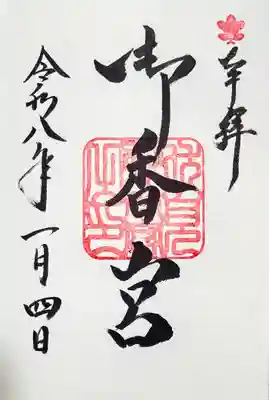 奉拝
御香宮
令和八年
一月四日